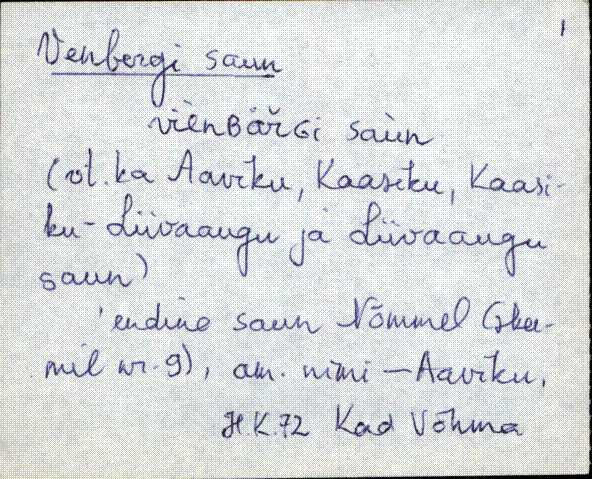 1
Venbergi saun
vièn BäřGi saùn
(vt. ka Aaviku, Kaasiku, Kaasi-
ku-Liivaaugu ja Liivaaugu
saun)
'endine saun Nõmmel (skee-
mil nr. 9), am. nimi – Aaviku.
H.K. 72 Kad Võhma